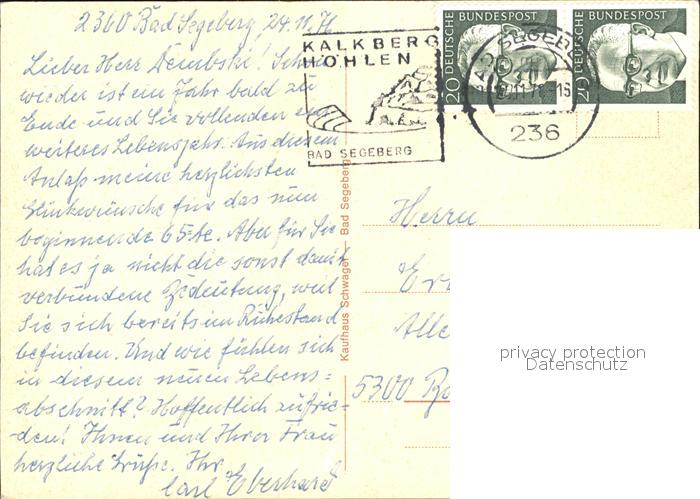 2360 Bad Segeberg, 24.11.76
Lieber Herr Dembski! Schon
wieder ist ein Jahr bald zu
Ende und Sie vollenden ein
weiteres Lebensjahr. Aus diesem
Anlaß meine herzlichsten
Glückwünsche für das nun
beginnende 65-te. Aber für Sie
hat es ja nicht die sonst damit
verbundene Bedeutung, weil
Sie sich bereits im Ruhestand
befinden. Und wie fühlen sich
in diesem neuen Lebens=
abschnitt? Hoffentlich zufrie-
-den! Ihnen und Ihrer Frau
herzliche Grüße. Ihr
Carl Eberhard
KALKBERG
HÖHLEN
BAD SEGEBERG
DEUTSCHE BUNDESPOST
20
DEUTSCHE BUNDESPOST
20
BAD SEGEBERG
236
Kaufhaus Schwager – Bad Segeberg
Herrn
Er
Alle
5300 Bo
privacy protection
Datenschutz